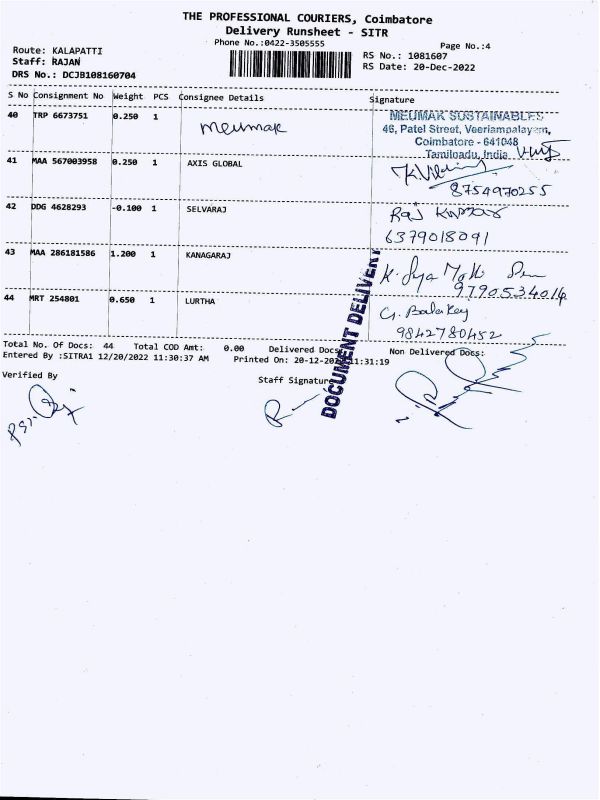 THE PROFESSIONAL COURIERS, Coimbatore
Delivery Runsheet - SITR
Phone No.:0422-3505555
Page No.:4
Route: KALAPATTI
RS No.: 1081607
Staff: RAJAN
RS Date: 20-Dec-2022
DRS No.: DCJB108160704
S No Consignment No Weight PCS Consignee Details Signature
40 TRP 6673751 0.250 1 meumak
MEUMAK SUSTAINABLES
46, Patel Street, Veeriampalayam,
Coimbatore - 641048
Tamilnadu, India
41 MAA 567003958 0.250 1 AXIS GLOBAL
8754970255
42 DDG 4628293 -0.100 1 SELVARAJ Raj Kumar
6379018091
43 MAA 286181586 1.200 1 KANAGARAJ
9790534014
44 MRT 254801 0.650 1 LURTHA
9842780452
DOCUMENT DELIVERY
Total No. Of Docs: 44 Total COD Amt: 0.00 Delivered Docs: Non Delivered Docs:
Entered By :SITRA1 12/20/2022 11:30:37 AM Printed On: 20-12-2022 11:31:19
Verified By
Staff Signature